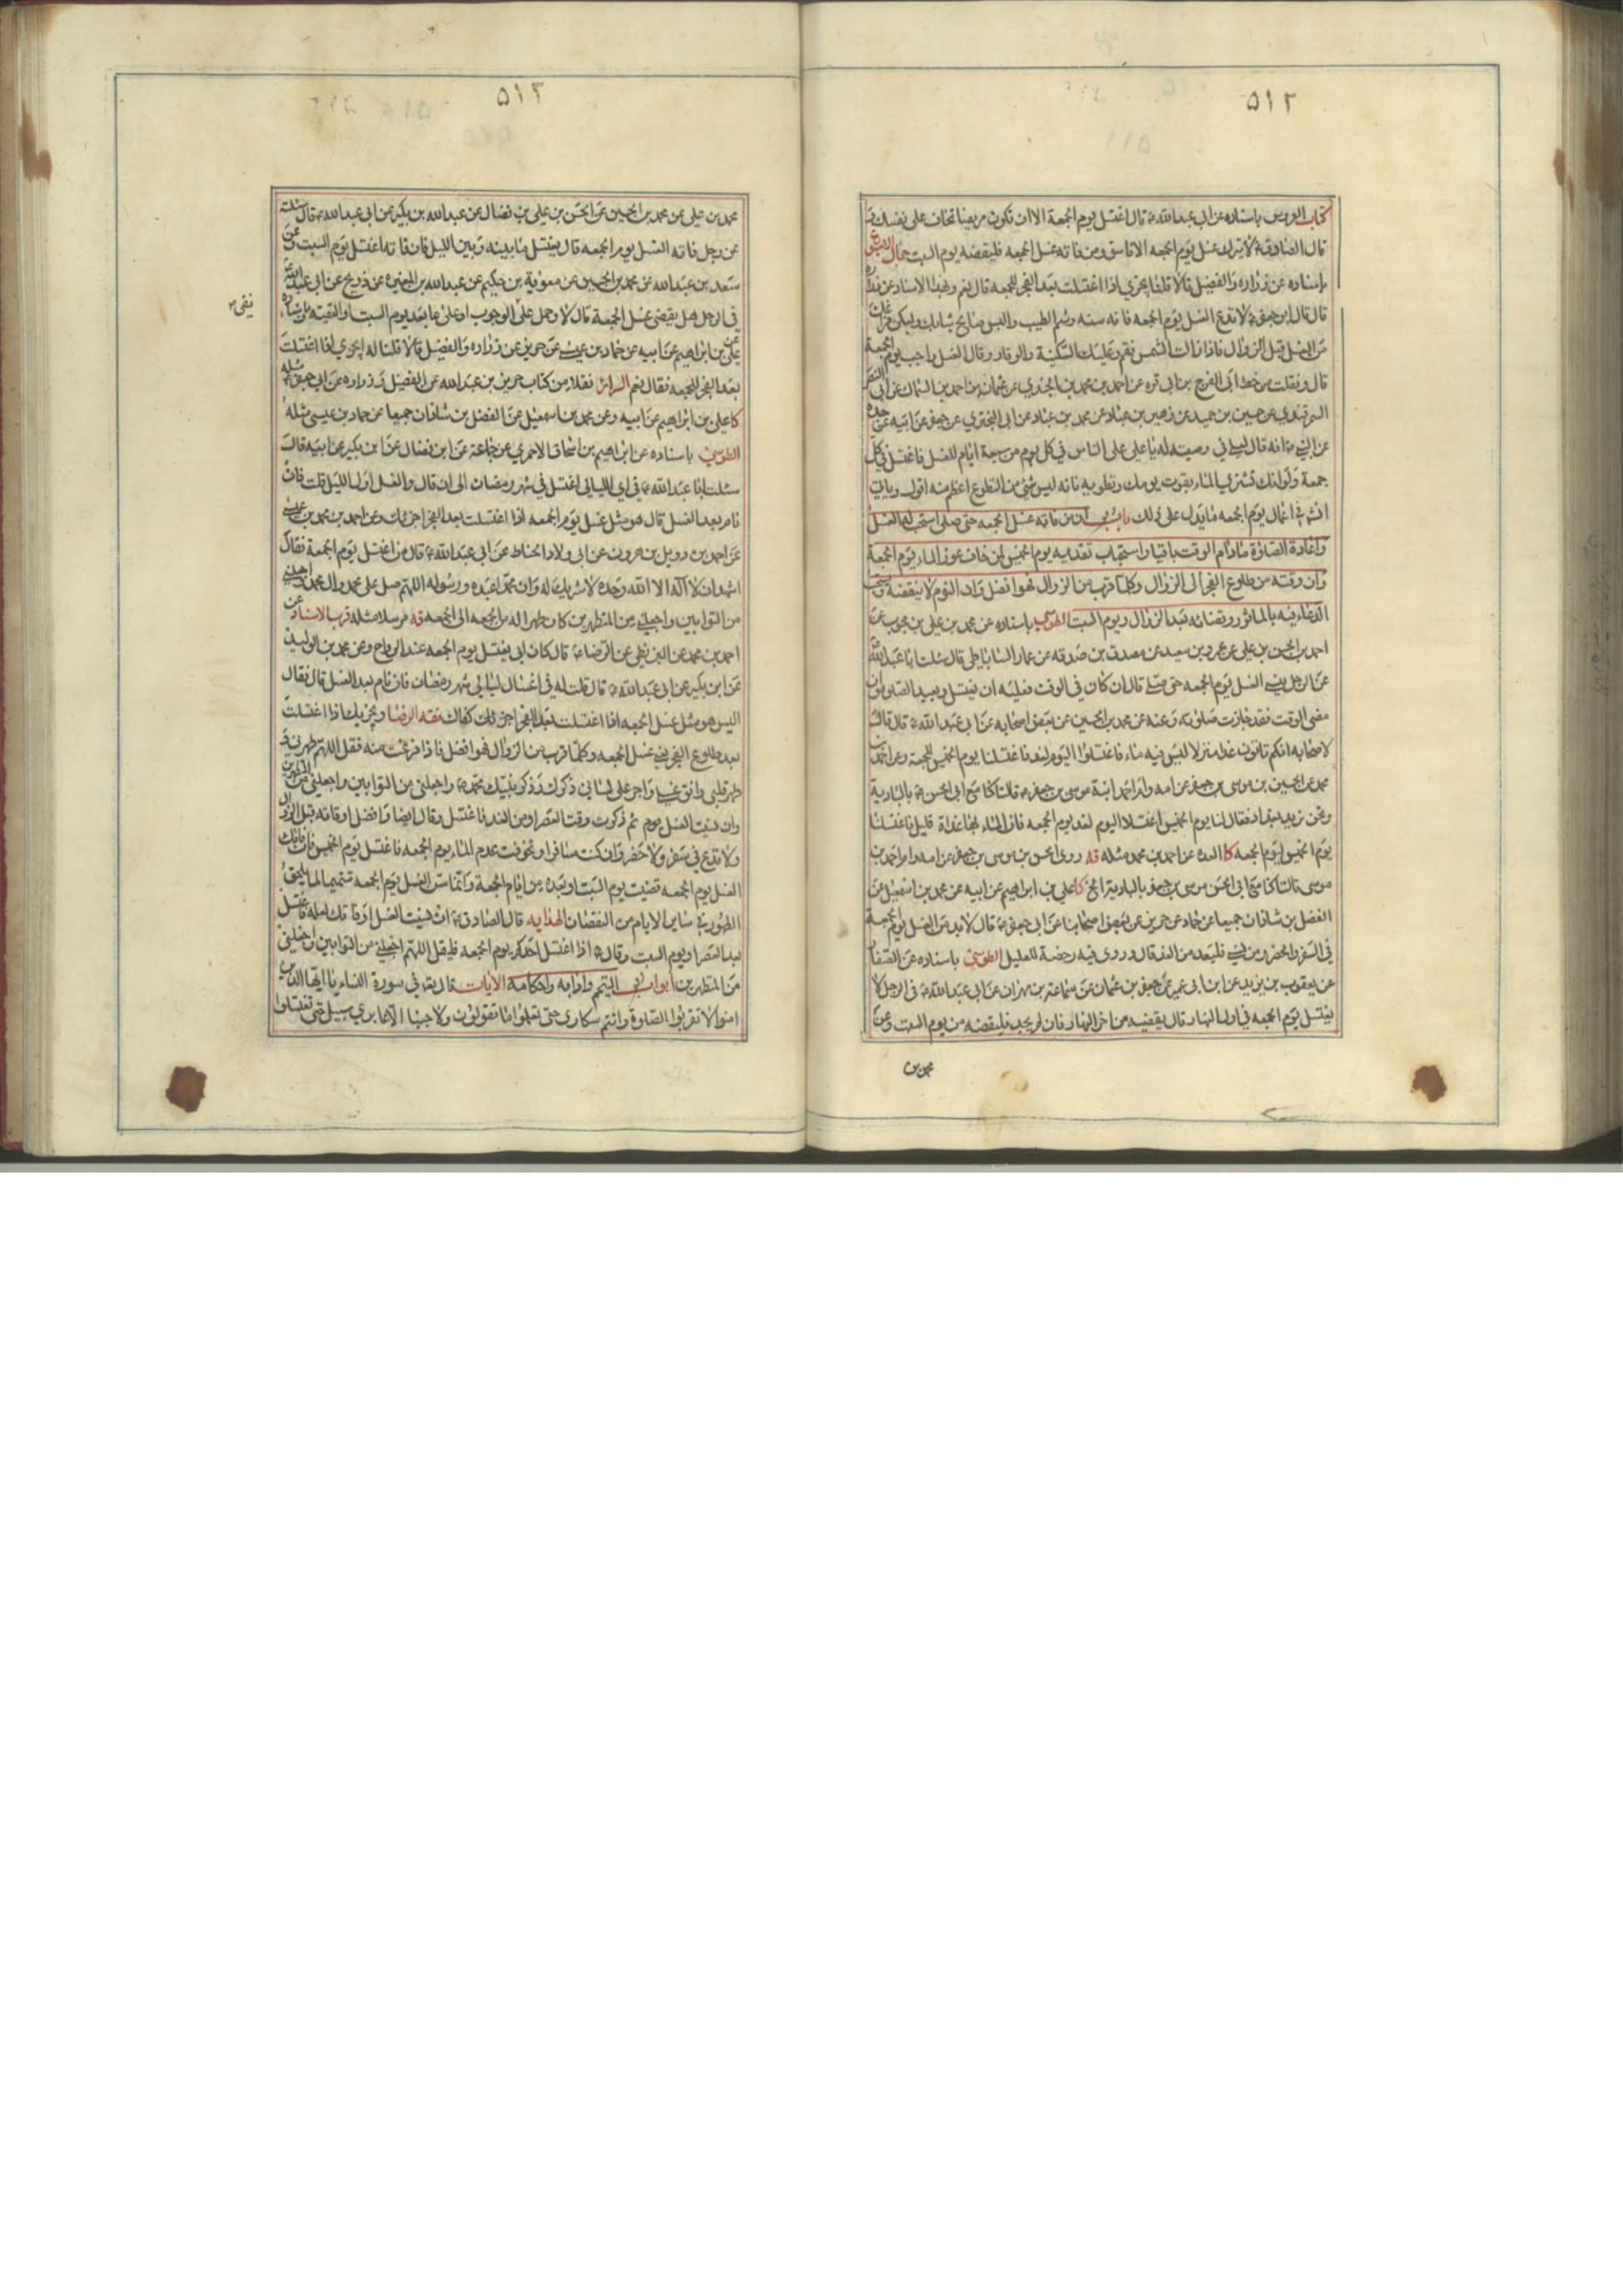 ٥١٢
كتاب العروس باسناده عن ابي عبدالله ع قال اغتسل يوم الجمعة الا ان تكون مريضا تخاف على نفسك
قال الصادق ع لا يترك غسل يوم الجمعه الا فاسق ومن فاته غسل الجمعه فليقضه يوم السبت جمال الاسبوع
باسناده عن زراره والفضيل قالا قلنا يجزي اذا اغتسلت بعد الفجر للجمعه قال نعم وبهذا الاسناد عن زراره
قال قال ابو جعفر ع لا تدع الغسل يوم الجمعه فانه سنه وشم الطيب والبس صالح ثيابك وليكن فراغك
من الغسل قبل الزوال فاذا زالت الشمس فقم وعليك السكينة والوقار وقال الغسل واجب يوم الجمعة
قال ونقلت من خط ابي الفرج بن ابي قره عن احمد بن محمد بن الجندي عن عثمان بن احمد بن السماك عن ابي النصر
السمرقندي عن حسين بن حميد عن زهير بن عباد عن محمد بن عباد عن ابي البختري عن جعفر عن ابيه عن جده
عن النبي ص انه قال لعلي في وصيته له يا علي على الناس في كل يوم من سبعة ايام الغسل فاغتسل في كل
جمعة ولو انك تشتري الماء بقوت يومك وتطويه فانه ليس شئ من التطوع اعظم منه اقول وياتي
في اعمال يوم الجمعه ما يدل على ذلك باب ان من فاته غسل الجمعه حتى صلى استحب له الغسل
واعادة الصلوة مادام الوقت باقيا واستحباب تقديمه يوم الخميس لمن خاف عوز الماء يوم الجمعة
وان وقته من طلوع الفجر الى الزوال وكلما قرب من الزوال فهو افضل وان النوم لا ينقضه ويستحب
الدعاء فيه بالماثور وقضائه بعد الزوال ويوم السبت الطوسي باسناده عن محمد بن علي بن محبوب عن
احمد بن الحسن بن علي عن عمرو بن سعيد عن مصدق بن صدقه عن عمار الساباطي قال سئلت ابا عبدالله ع
عن الرجل ينسى الغسل يوم الجمعه حتى صلى قال ان كان في الوقت فعليه ان يغتسل ويعيد الصلوة وان
مضى الوقت فقد جازت صلوته وعنه عن محمد بن الحسين عن بعض اصحابه عن ابي عبد الله ع قال قال
لاصحابه انكم تاتون غدا منزلا ليس فيه ماء فاغتسلوا اليوم لغد فاغتسلنا يوم الخميس للجمعة وعن احمد بن
محمد عن الحسين بن موسى بن جعفر عن امه وام احمد ابنة موسى بن جعفر قالتا كنا مع ابي الحسن ع بالبادية
ونحن نريد بغداد فقال لنا يوم الخميس اغتسلا اليوم لغد يوم الجمعه فان الماء بها غداة قليل فاغتسلنا
يوم الخميس ليوم الجمعه كا العدة عن احمد بن محمد مثله قه روى الحسن بن موسى بن جعفر عن امه وام احمد بن
موسى قالتا كنا مع ابي الحسن موسى بن جعفر بالبادية الخ كا علي بن ابراهيم عن ابيه عن محمد بن اسمعيل عن
الفضل بن شاذان جميعا عن حماد عن حريز عن بعض اصحابنا عن ابي جعفر ع قال لا بد من الغسل يوم الجمعة
في السفر والحضر ومن نسي فليعد من الغد قال وروى فيه رخصة للعليل الطوسي باسناده عن الصفار
عن يعقوب بن يزيد عن ابن ابي عمير عن جعفر بن عثمان عن سماعة بن مهران عن ابي عبدالله ع في الرجل لا
يغتسل يوم الجمعه في اول النهار قال يقضيه من اخر النهار فان لم يجد فليقضه من يوم السبت وعن
محمد بن
٥١٣
محمد بن علي عن محمد بن الحسين عن الحسن بن علي بن فضال عن عبدالله بن بكير عن ابي عبدالله ع قال سئلته
عن رجل فاته الغسل يوم الجمعه قال يغتسل ما بينه وبين الليل فان فاته اغتسل يوم السبت وعن
سعد بن عبدالله عن محمد بن الحسين عن معوية بن حكيم عن عبدالله بن المغيره عن ذريح عن ابي عبدالله ع
في الرجل هل يقضي غسل الجمعة قال لا وحمل على الوجوب او على ما بعد يوم السبت او التقيه
علي بن ابراهيم عن ابيه عن حماد بن عيسى عن حريز عن زراره والفضيل قالا قلنا له ايجزي اذا اغتسلت
بعد الفجر للجمعه فقال نعم السرائر نقلا من كتاب حريز بن عبدالله عن الفضيل وزراره عن ابي جعفر ع مثله
كا علي بن ابراهيم عن ابيه وعن محمد بن اسمعيل عن الفضل بن شاذان جميعا عن حماد بن عيسى مثله
الطوسي باسناده عن ابراهيم بن اسحاق الاحمري عن جماعة عن ابن فضال عن ابن بكير عن ابيه قال
سئلت ابا عبدالله ع في اي الليالي اغتسل في شهر رمضان الى ان قال والغسل اول الليل قلت فان
نام بعد الغسل قال هو مثل غسل يوم الجمعه اذا اغتسلت بعد الفجر اجزئك وعن احمد بن محمد بن عيسى
عن احمد بن دويل بن هرون عن ابي ولاد الحناط عن ابي عبدالله ع قال من اغتسل يوم الجمعة فقال
اشهد ان لا اله الا الله وحده لا شريك له وان محمدا عبده ورسوله اللهم صل على محمد وال محمد واجعلني
من التوابين واجعلني من المتطهرين كان طهرا له من الجمعه الى الجمعه قه مرسلا مثله قرب الاسناد عن
احمد بن محمد عن البزنطي عن الرضا ع قال كان ابي يغتسل يوم الجمعه عند الرواح وعن محمد بن الوليد
عن ابن بكير عن ابي عبدالله ع قال قلت له في اغتسال ليالي شهر رمضان فان نام بعد الغسل قال فقال
اليس هو مثل غسل الجمعه اذا اغتسلت بعد الفجر اجزئك كفاك فقه الرضا ويجزيك اذا اغتسلت
بعد طلوع الفجر غسل الجمعه وكلما قرب من الزوال فهو افضل فاذا فرغت منه فقل اللهم طهرني و
طهر قلبي وانق غسلي واجر على لساني ذكرك وذكر نبيك محمد ص واجعلني من التوابين واجعلني من المتطهرين
وان نسيت الغسل يوم ثم ذكرت وقت العصر او من الغد فاغتسل وقال ايضا وافضل اوقاته قبل الزوال
ولا تدع في سفر ولا حضر وان كنت مسافرا وتخوفت عدم الماء يوم الجمعه فاغتسل يوم الخميس فان فاتك
الغسل يوم الجمعه قضيت يوم السبت او بعده من ايام الجمعة وانما سن الغسل يوم الجمعه تتميما لما يلحق
الطهور في ساير الايام من النقصان الهدايه قال الصادق ع ان نسيت الغسل او فاتك لعلة فاغتسل
بعد العصر او يوم السبت وقال ع اذا اغتسل احدكم يوم الجمعه فليقل اللهم اجعلني من التوابين واجعلني
من المتطهرين ابواب التيمم وادابه واحكامه الايات قال تع في سورة النساء يا ايها الذين
امنوا لا تقربوا الصلوة وانتم سكارى حتى تعلموا ما تقولون ولا جنبا الا عابري سبيل حتى تغتسلوا